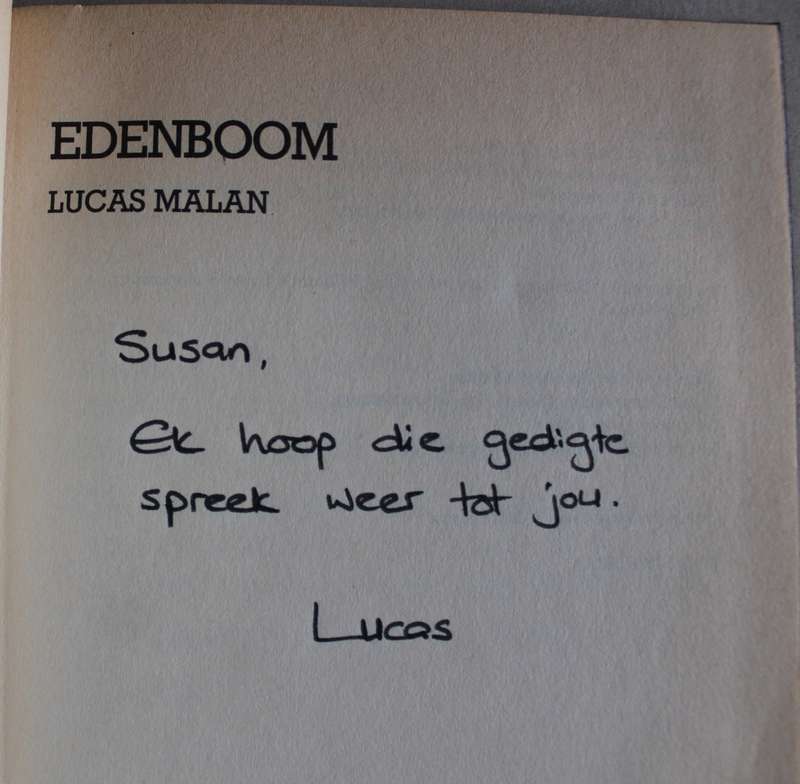 EDENBOOM
LUCAS MALAN
Susan,
Ek hoop die gedigte
spreek weer tot jou.
Lucas